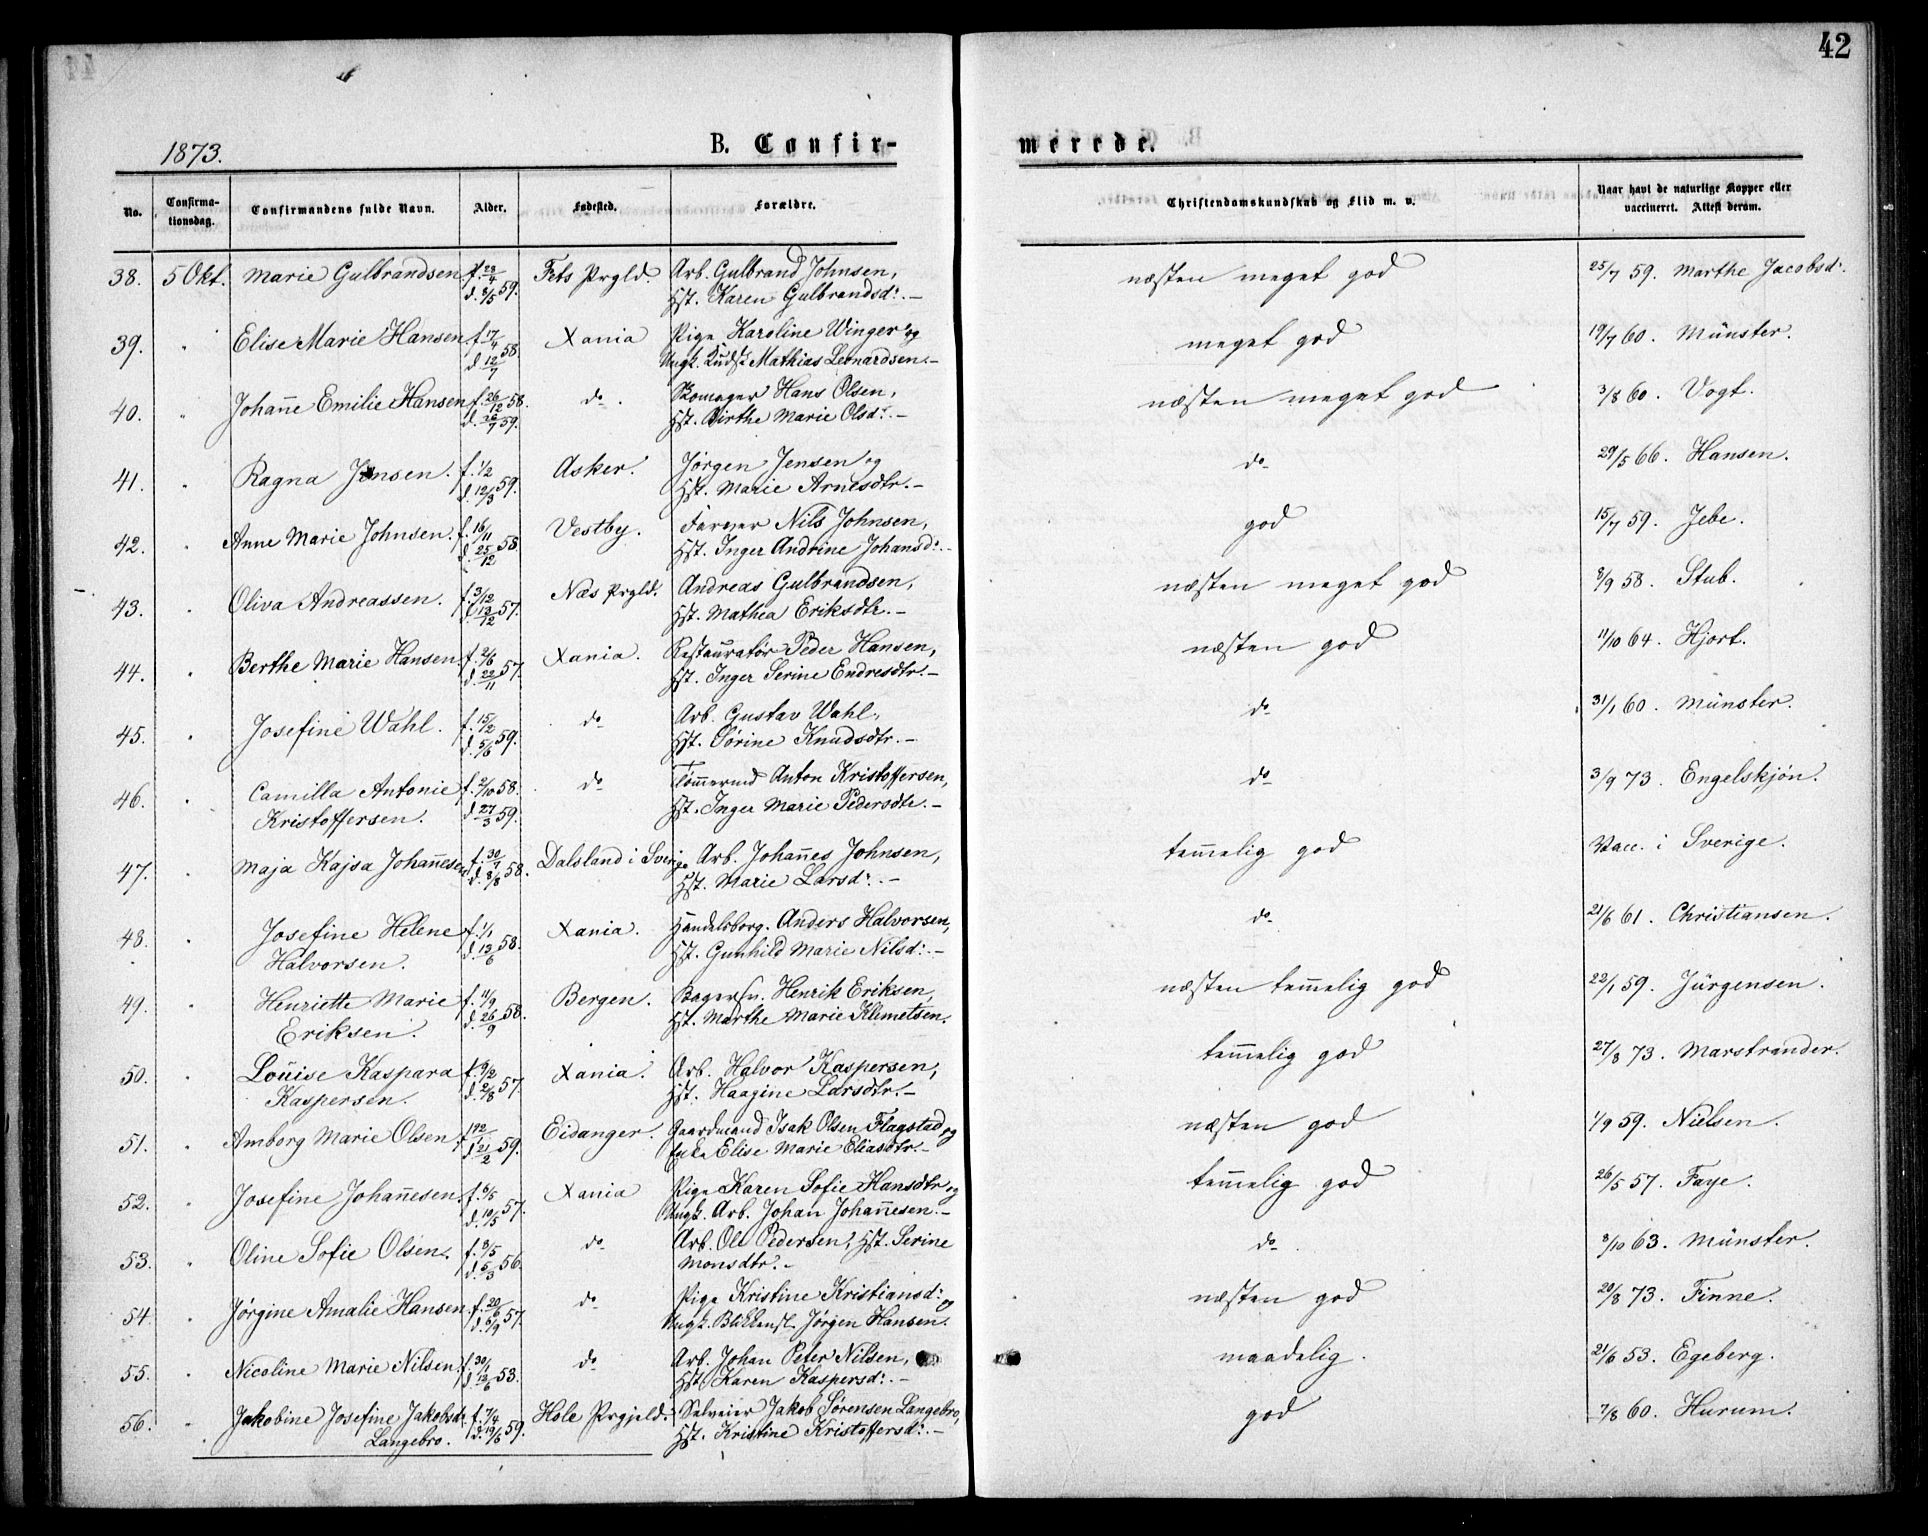 42
1873.
B. Confir-
merede.
No.
Confirma-
tionsdag.
Confirmandens fulde Navn.
Alder.
Fødested.
Forældre.
Christendomskundskab og Flid m. v.
Naar havt de naturlige Kopper eller
vaccineret. Attest derom.
38. 5 Okt. Marie Gulbrandsen f. 23/4 d. 8/5 59. Fets Prgld. Arb. Gulbrand Johnsen, næsten meget god 25/7 59. Marthe Jacobsd:
Hst. Karen Gulbrandsd: –
39. " Elise Marie Hansen f. 17/4 d. 12/7 58. Xania Pige Karoline Winger og meget god 19/7 60. Münster.
Ungk. Kudsk Mathias Leonardsen. –
40. " Johanne Emilie Hansen f. 26/12 58. d. 26/7 59. do. Skomager Hans Olsen, næsten meget god 3/8 60. Vogt.
Hst. Birthe Marie Olsd: –
41. " Ragna Jensen. f. 1/2 d. 12/3 59. Asker. Jørgen Jensen og do 29/5 66. Hansen.
Hst. Marie Arnesdtr. –
42. " Anne Marie Johnsen. f. 16/11 d. 25/12 58. Vestby. Farver Nils Johnsen, god 15/7 59. Jebe.
Hst. Inger Andrine Johansd: –
43. " Oliva Andreassen. f. 3/12 d. 13/12 57. Næs Prgld. Andreas Gulbrandsen, næsten meget god 8/9 58. Stub.
Hst. Mathea Eriksdtr. –
44. " Berthe Marie Hansen f. 2/6 d. 22/11 57. Xania. Restauratør Peder Hansen, næsten god 11/10 64. Hjort.
Hst. Inger Serine Endresdtr. –
45. " Josefine Wahl. f. 15/2 d. 5/6 59. do Arb. Gustav Wahl, do 31/1 60. Münster.
Hst. Sørine Knudsdtr. –
46. " Camilla Antonie f. 2/10 58. do Tømmermd Anton Kristoffersen, do 3/9 73. Engelskjøn.
Kristoffersen. d. 27/3 59. Hst. Inger Marie Pedersdtr. –
47. " Maja Kajsa Johannesen f. 30/7 d. 8/8 58. Dalsland i Sverige Arb. Johannes Johnsen, temmelig god Vacc. i Sverige.
Hst. Marie Larsd: –
48. " Josefine Helene f. 1/1 Xania. Handelsborg. Anders Halvorsen, do 21/6 61. Christiansen.
Halvorsen. d. 13/6 58. Hst. Gunhild Marie Nilsd: –
49. " Henriette Marie f. 11/9 Bergen. Bagersv. Henrik Eriksen, næsten temmelig god 22/1 59. Jürgensen.
Eriksen. d. 26/9 58. Hst. Marthe Marie Klemetsen.
50. " Louise Kaspara f. 9/2 Xania. Arb. Halvor Kaspersen, temmelig god 27/8 73. Marstrander.
Kaspersen. d. 2/8 57. Hst. Haagine Larsdtr. –
51. " Amborg Marie Olsen. d. 21/2 59. Eidanger. Gaardmand Isak Olsen Flagstad og næsten god 1/9 59. Nielsen.
Enke Elise Marie Eliasdtr. –
52. " Josefine Johannesen. f. 6/5 d. 10/5 57. Xania Pige Karen Sofie Hansdtr og temmelig god 26/5 57. Faye.
Ungk. Arb. Johan Johannesen. –
53. " Oline Sofie Olsen. f. 8/5 d. 5/3 56. do Arb. Ole Pedersen, Hst. Serine do 8/10 63. Münster.
Monsdtr. –
54. " Jørgine Amalie Hansen. f. 20/6 d. 6/9 57. do Pige Kristine Kristiansd: og næsten god 20/8 73. Finne.
Ungk. Blikkensl. Jørgen Hansen.
55. " Nicoline Marie Nilsen. f. 30/1 d. 12/6 53. do Arb. Johan Peter Nilsen, maadelig. 21/6 53. Egeberg.
Hst. Karen Kaspersd: –
56. " Jakobine Josefine Jakobsd: f. 7/4 Hole Prgjeld. Selveier Jakob Sørensen Langebro, god 7/8 60. Hurum.
Langebro. d. 19/6 59. Hst. Kristine Kristoffersd: –